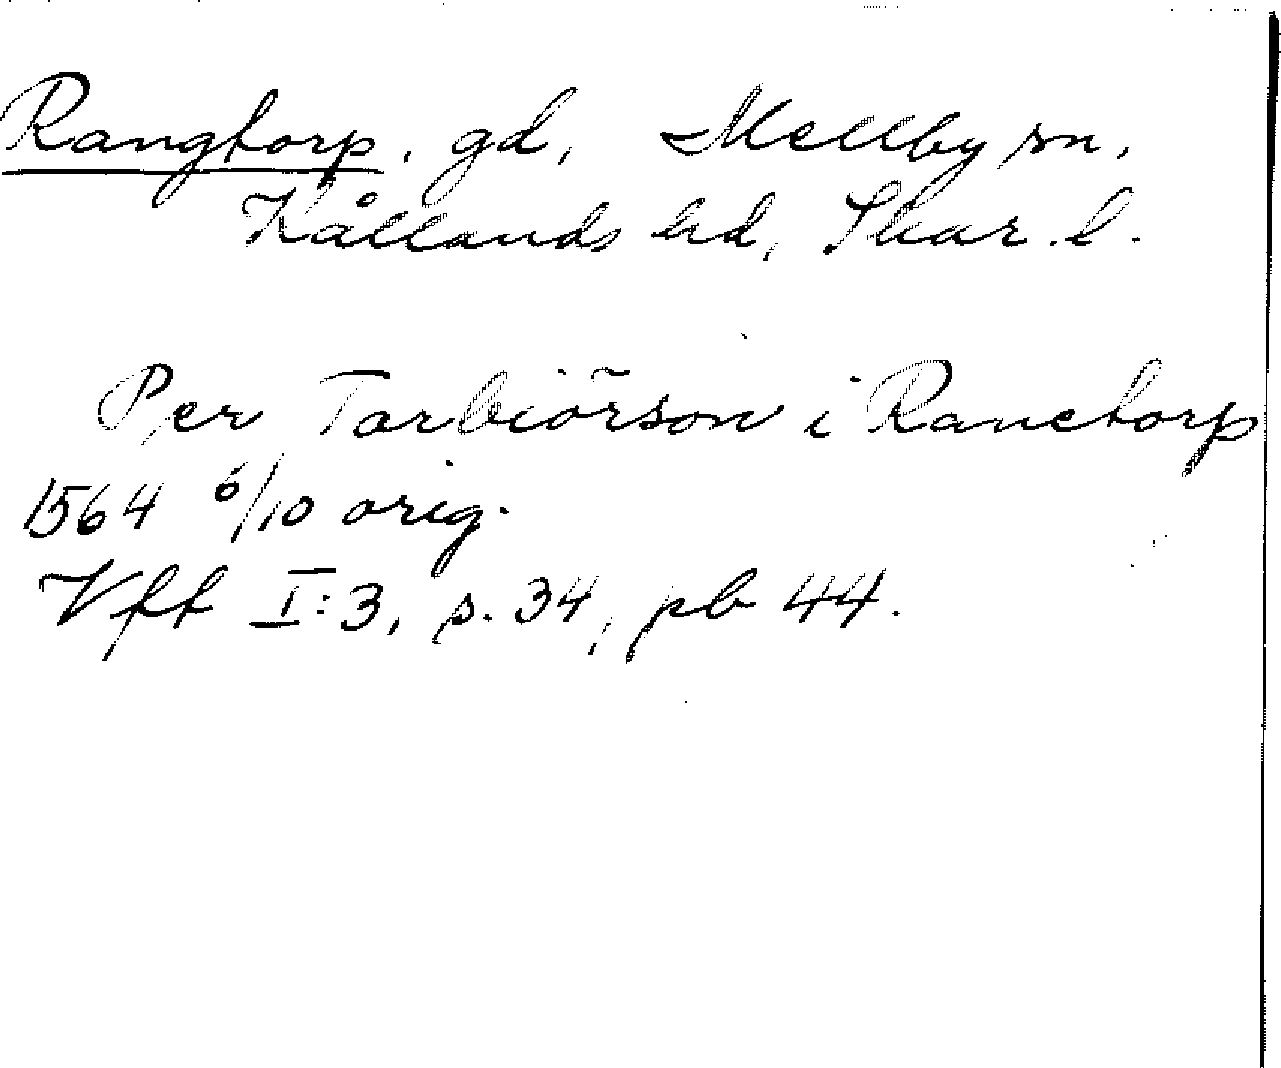 Rangtorp, gd, Mellby sn,
Kållands hd, Skar. l.
Per Torbiörson i Ranetorp
1564 6/10 orig.
Vff I:3, s. 34, pb 44.